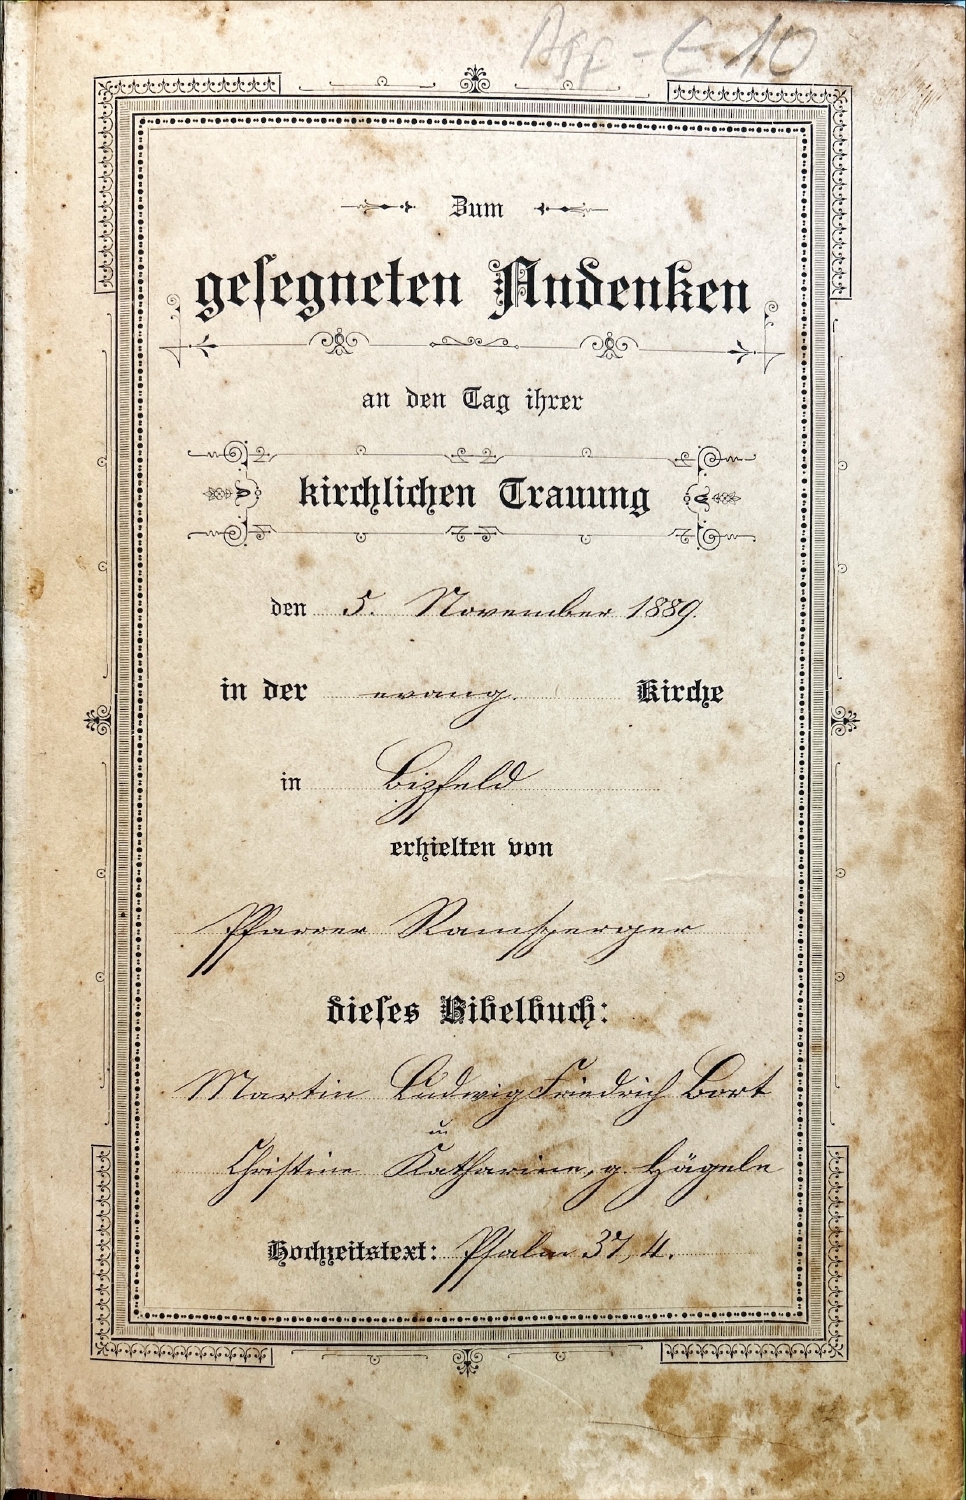 Zum
gesegneten Andenken
an den Tag ihrer
kirchlichen Trauung
den 5. November 1889.
in der evang. Kirche
in Bizfeld
erhielten von
Pfarrer Ramsperger
dieses Bibelbuch:
Martin Ludwig Friedrich Bort
u
Christine Katharine, g. Hägele
Hochzeitstext: Psalm 37, 4.